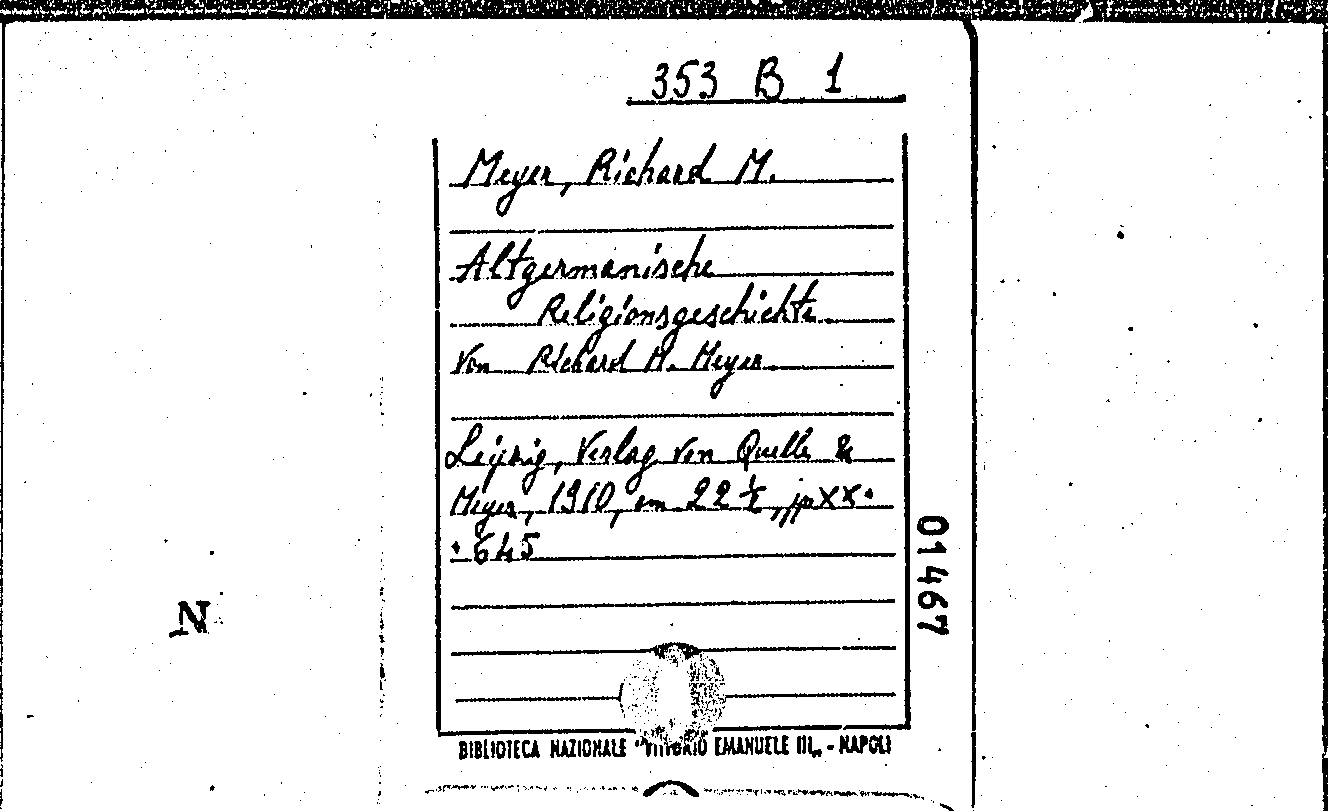 353 B 1
Meyer, Richard M.
Altgermanische
Religionsgeschichte
von Richard M. Meyer
Leipzig, Verlag von Quelle &
Meyer, 1910, cm 22 ½, pp XX +
+ 645
01467
N
BIBLIOTECA NAZIONALE "VITTORIO EMANUELE III„ - NAPOLI